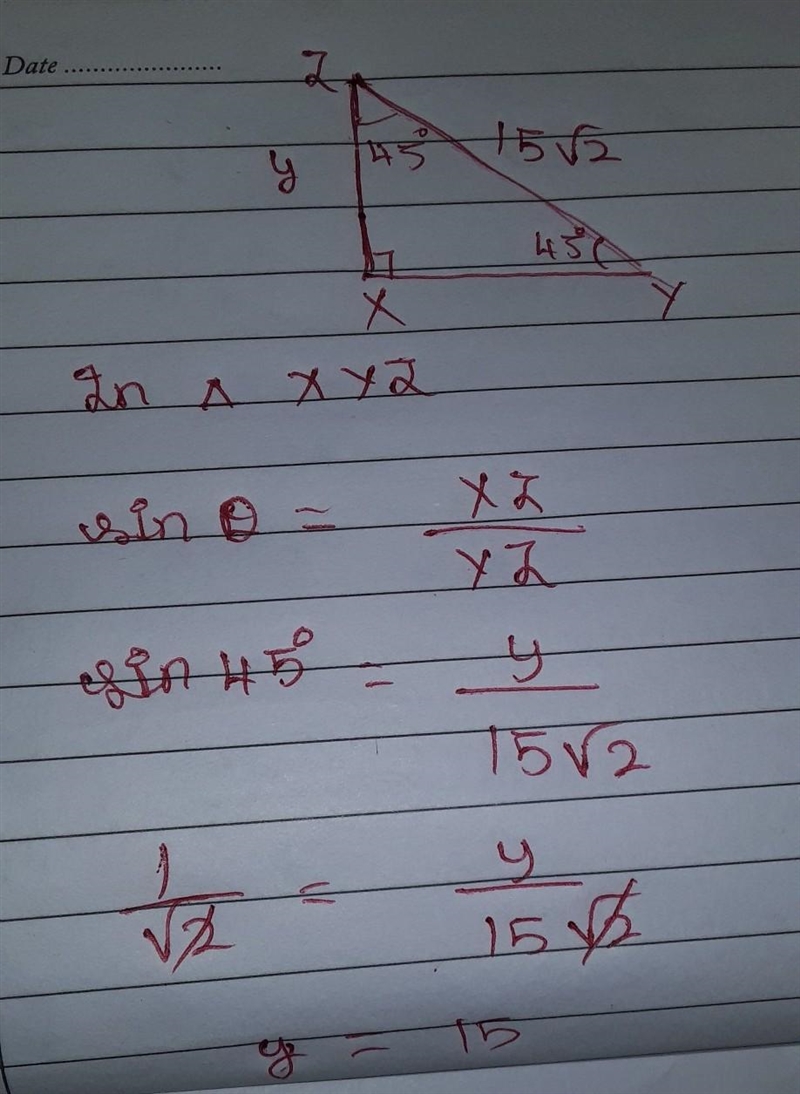 Date ......................
Z
45° 15√2
y
45°
X Y
In △ XYZ
sin θ = XZ / YZ
sin 45° = y / 15√2
1 / √2 = y / 15√2
y = 15